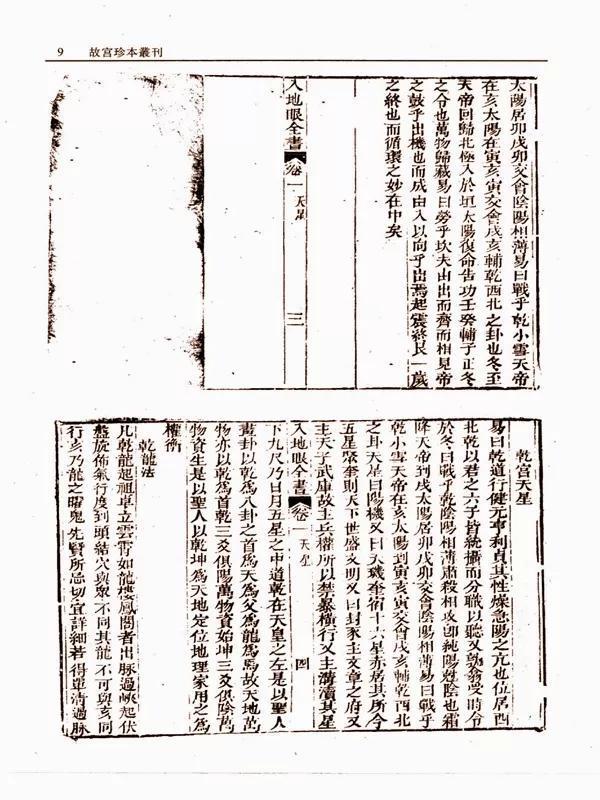 9 故宮珍本叢刊
太陽居卯戌卯交會陰陽相薄易曰戰乎乾小雪天帝
在亥太陽在寅亥寅交會戌亥輔乾西北之卦也冬至
天帝回歸北極入於垣太陽復命告功壬癸輔子正冬
之令也萬物歸藏易曰勞乎坎夫由出而齊而相見帝
之鼓乎出機也而成由入以向乎出焉起震終艮一歲
之終也而循環之妙在中矣
入地眼全書 卷一 天星 三
乾宮天星
易曰乾道行健元亨利貞其性燥急陽之亢也位居西
北乾以君之六子皆統攝而分職以聽又兌翁受時令
於冬曰戰乎乾陰陽相薄肅殺相攻卽純陽剋陰也霜
降天帝到戌太陽居卯戌卯交會陰陽相薄易曰戰乎
乾小雪天帝在亥太陽到寅亥寅交會戌亥輔乾西北
之卦天星曰陽機又曰天璣奎宿十六星亦居其所今
五星聚奎則天下世盛文明又曰封豕主文章之府又
主天子武庫故主兵權所以禁暴橫行又主溝瀆其星
入地眼全書 卷一 天星 四
下九尺乃日月五星之中道乾在天皇之左是以聖人
畫卦以乾爲八卦之首爲天爲父爲龍爲馬故天地萬
物亦以乾爲首乾三爻俱陽萬物資始坤三爻俱陰萬
物資生是以聖人以乾坤爲天地定位地理家用之爲
權衡
乾龍法
凡乾龍起祖卓立雲霄如龍樓鳳閣者出脉過峽起伏
盤旋佈氣行度到頭結穴與衆不同其龍不可與亥同
行亥乃龍之曜鬼先賢所忌切宜詳細若得單清過脉